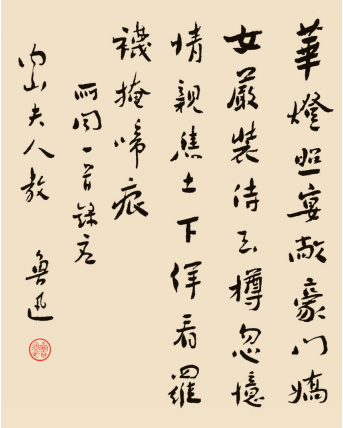 華燈照宴敞豪門嬌
女嚴裝侍玉樽忽憶
情親焦土下佯看羅
襪掩啼痕
所聞一首錄
内山夫人教
魯迅